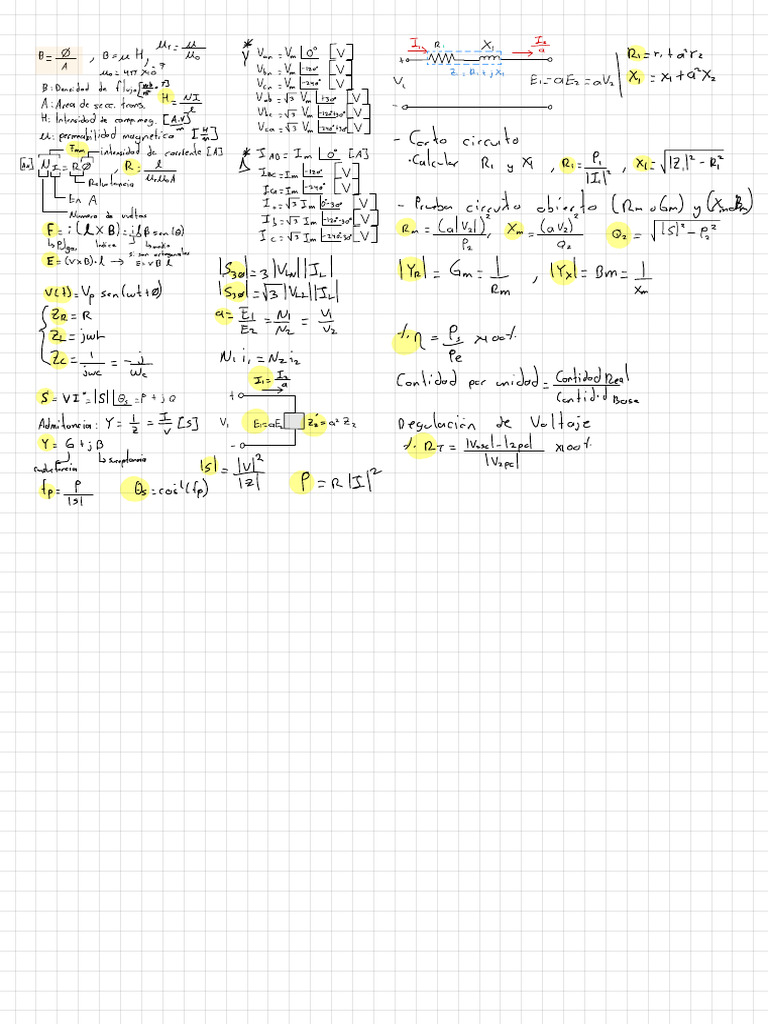 B = Ø/A , B = μ H, μr = μ/μ₀
μ₀ = 4π x10
B: Densidad de flujo
A: Area de secc. trans. H = NI/l
H: Intensidad de camp. mag. [A.v/m]
μ: permeabilidad magnetica [H/m]
Fmm intensidad de corriente [A]
[Av] NI = RØ R = l/μrμ₀A
Reluctancia
En A
Numero de vueltas
F = i(l x B) = ilB sen(θ)
E = (v x B)·l → E = vBl
v(t) = Vp sen(wt+Ø)
ZR = R
ZL = jwL
Zc = 1/jwc = -j/wc
S = VI* = |S|∠θs = P + jQ
Admitancia: Y = 1/Z = I/V [S]
Y = G + jB
conductancia suceptancia
fp = P/|S| θs = cos⁻¹(fp)
* Y
Van = Vm ∠0° [V]
Vbn = Vm ∠-120° [V]
Vcn = Vm ∠-240° [V]
Vab = √3 Vm ∠+30° [V]
Vbc = √3 Vm ∠-120+30° [V]
Vca = √3 Vm ∠-240+30° [V]
* Δ
IAB = Im ∠0° [A]
IBC = Im ∠-120° [V]
ICA = Im ∠-240° [V]
Ia = √3 Im ∠0-30° [V]
Ib = √3 Im ∠-120-30° [V]
Ic = √3 Im ∠-240-30° [V]
|S3Ø| = 3|VLN||IL|
|S3Ø| = √3|VLL||IL|
a = E1/E2 = N1/N2 = V1/V2
N1 i1 = N2 i2
I1 = I2/a
+
V1 E1=aE2 Z2' = a² Z2
-
|S| = |V|²/|Z| P = R|I|²
I1 R1 X1 I2/a
+
Z1 = R1 + jX1
V1 E1 = aE2 = aV2
-
R1 = r1 + a²r2
X1 = x1 + a²x2
- Corto circuito
· Calcular R1 y X1, R1 = P1/|I1|² , X1 = √|Z1|² - R1²
- Prueba circuito abierto (Rm o Gm) y
Rm = (a|V2|)²/P2, Xm = (aV2)²/Q2 Q2 = √|S|² - P2²
|YR| = Gm = 1/Rm , |YX| = Bm = 1/Xm
% η = Ps/Pe x100%
Cantidad por unidad = Cantidad Real/Cantidad Base
Regulación de Voltaje
% RT = |V2sc| - |V2pc|/|V2pc| x100%